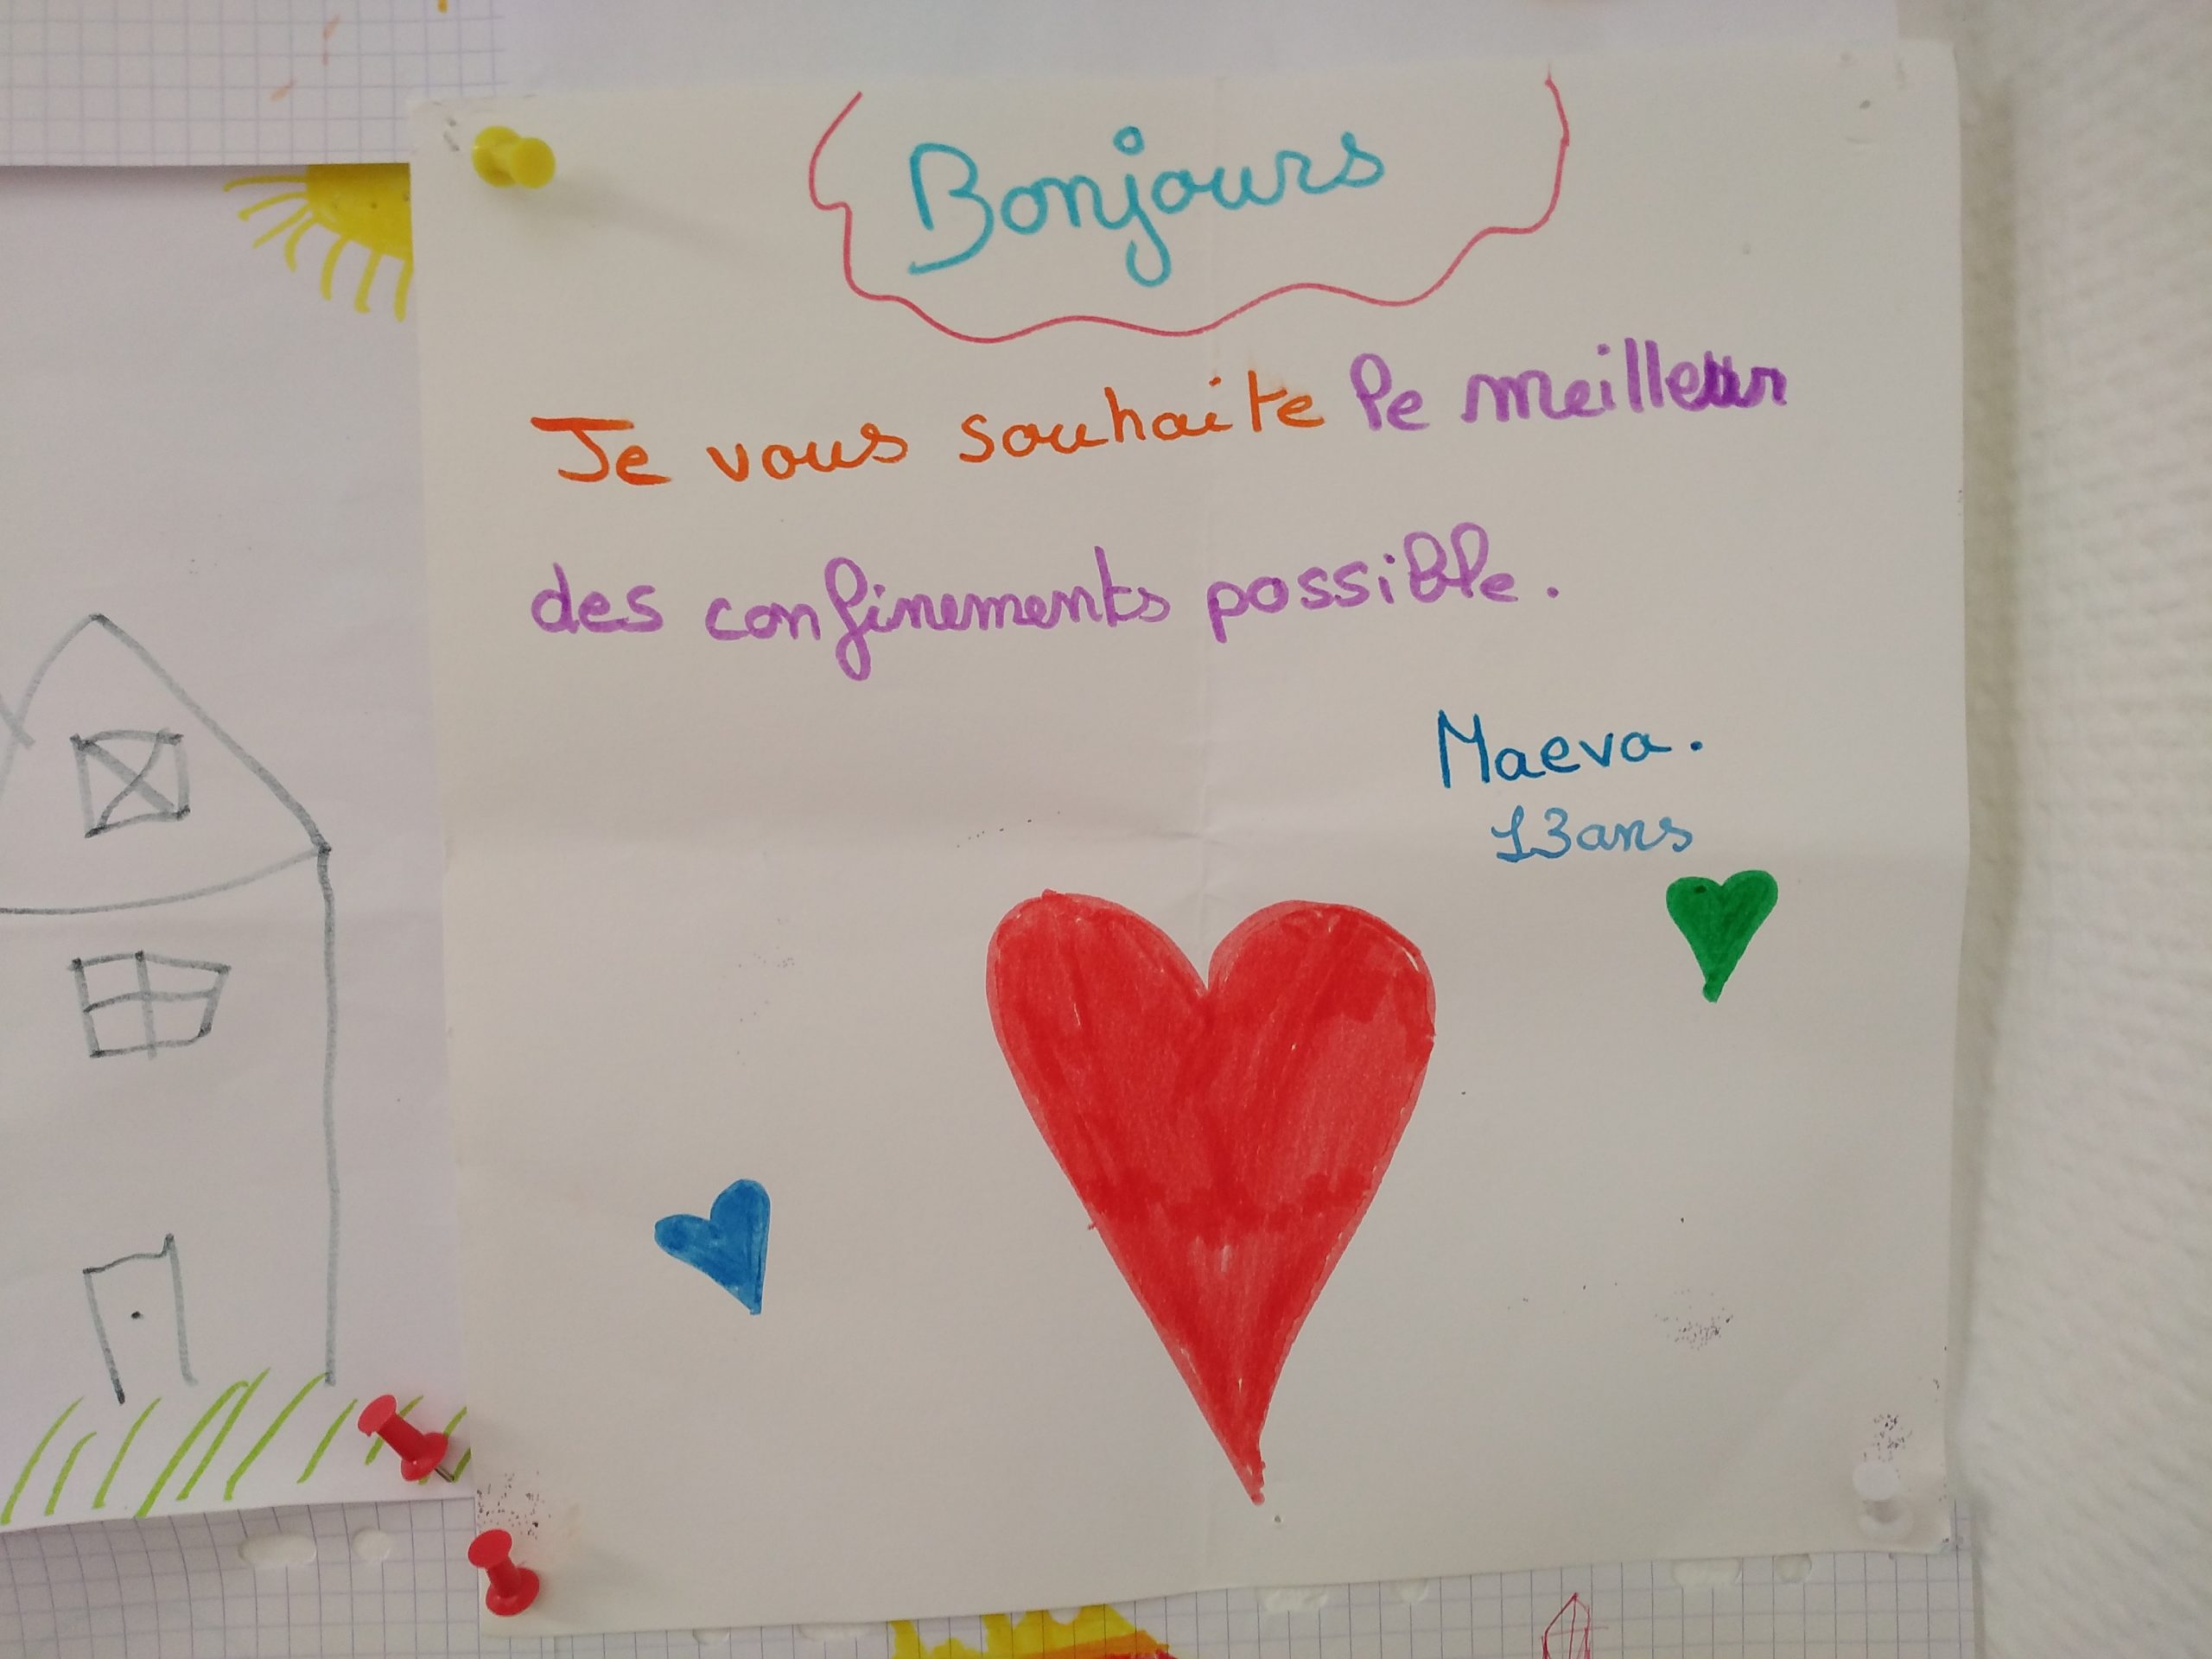 Bonjours
Je vous souhaite le meilleur
des confinements possible.
Maeva.
13ans